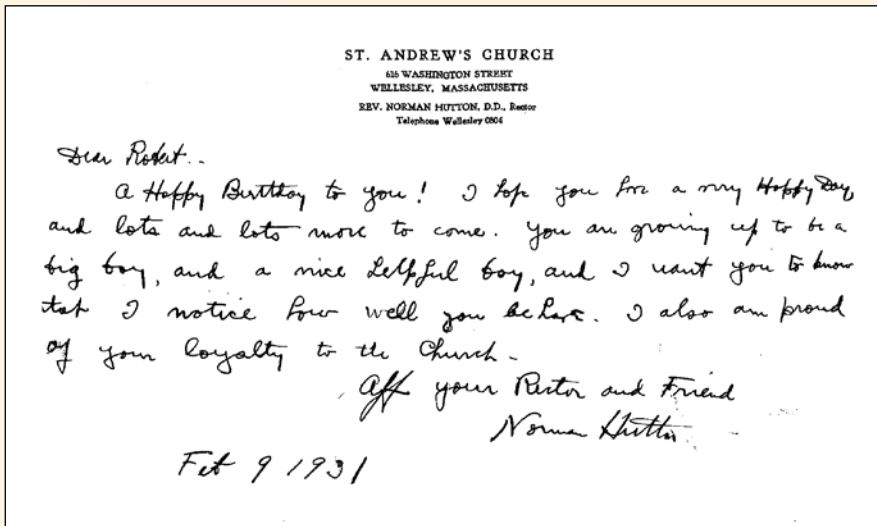 ST. ANDREW'S CHURCH
616 WASHINGTON STREET
WELLESLEY, MASSACHUSETTS
REV. NORMAN HUTTON, D.D., Rector
Telephone Wellesley 0804
Dear Robert..
A Happy Birthday to you! I hope you have a very Happy Day
and lots and lots more to come. You are growing up to be a
big boy, and a nice helpful boy, and I want you to know
that I notice how well you behave. I also am proud
of your loyalty to the Church -
Aff your Rector and Friend
Norman Hutton.
Feb 9 1931